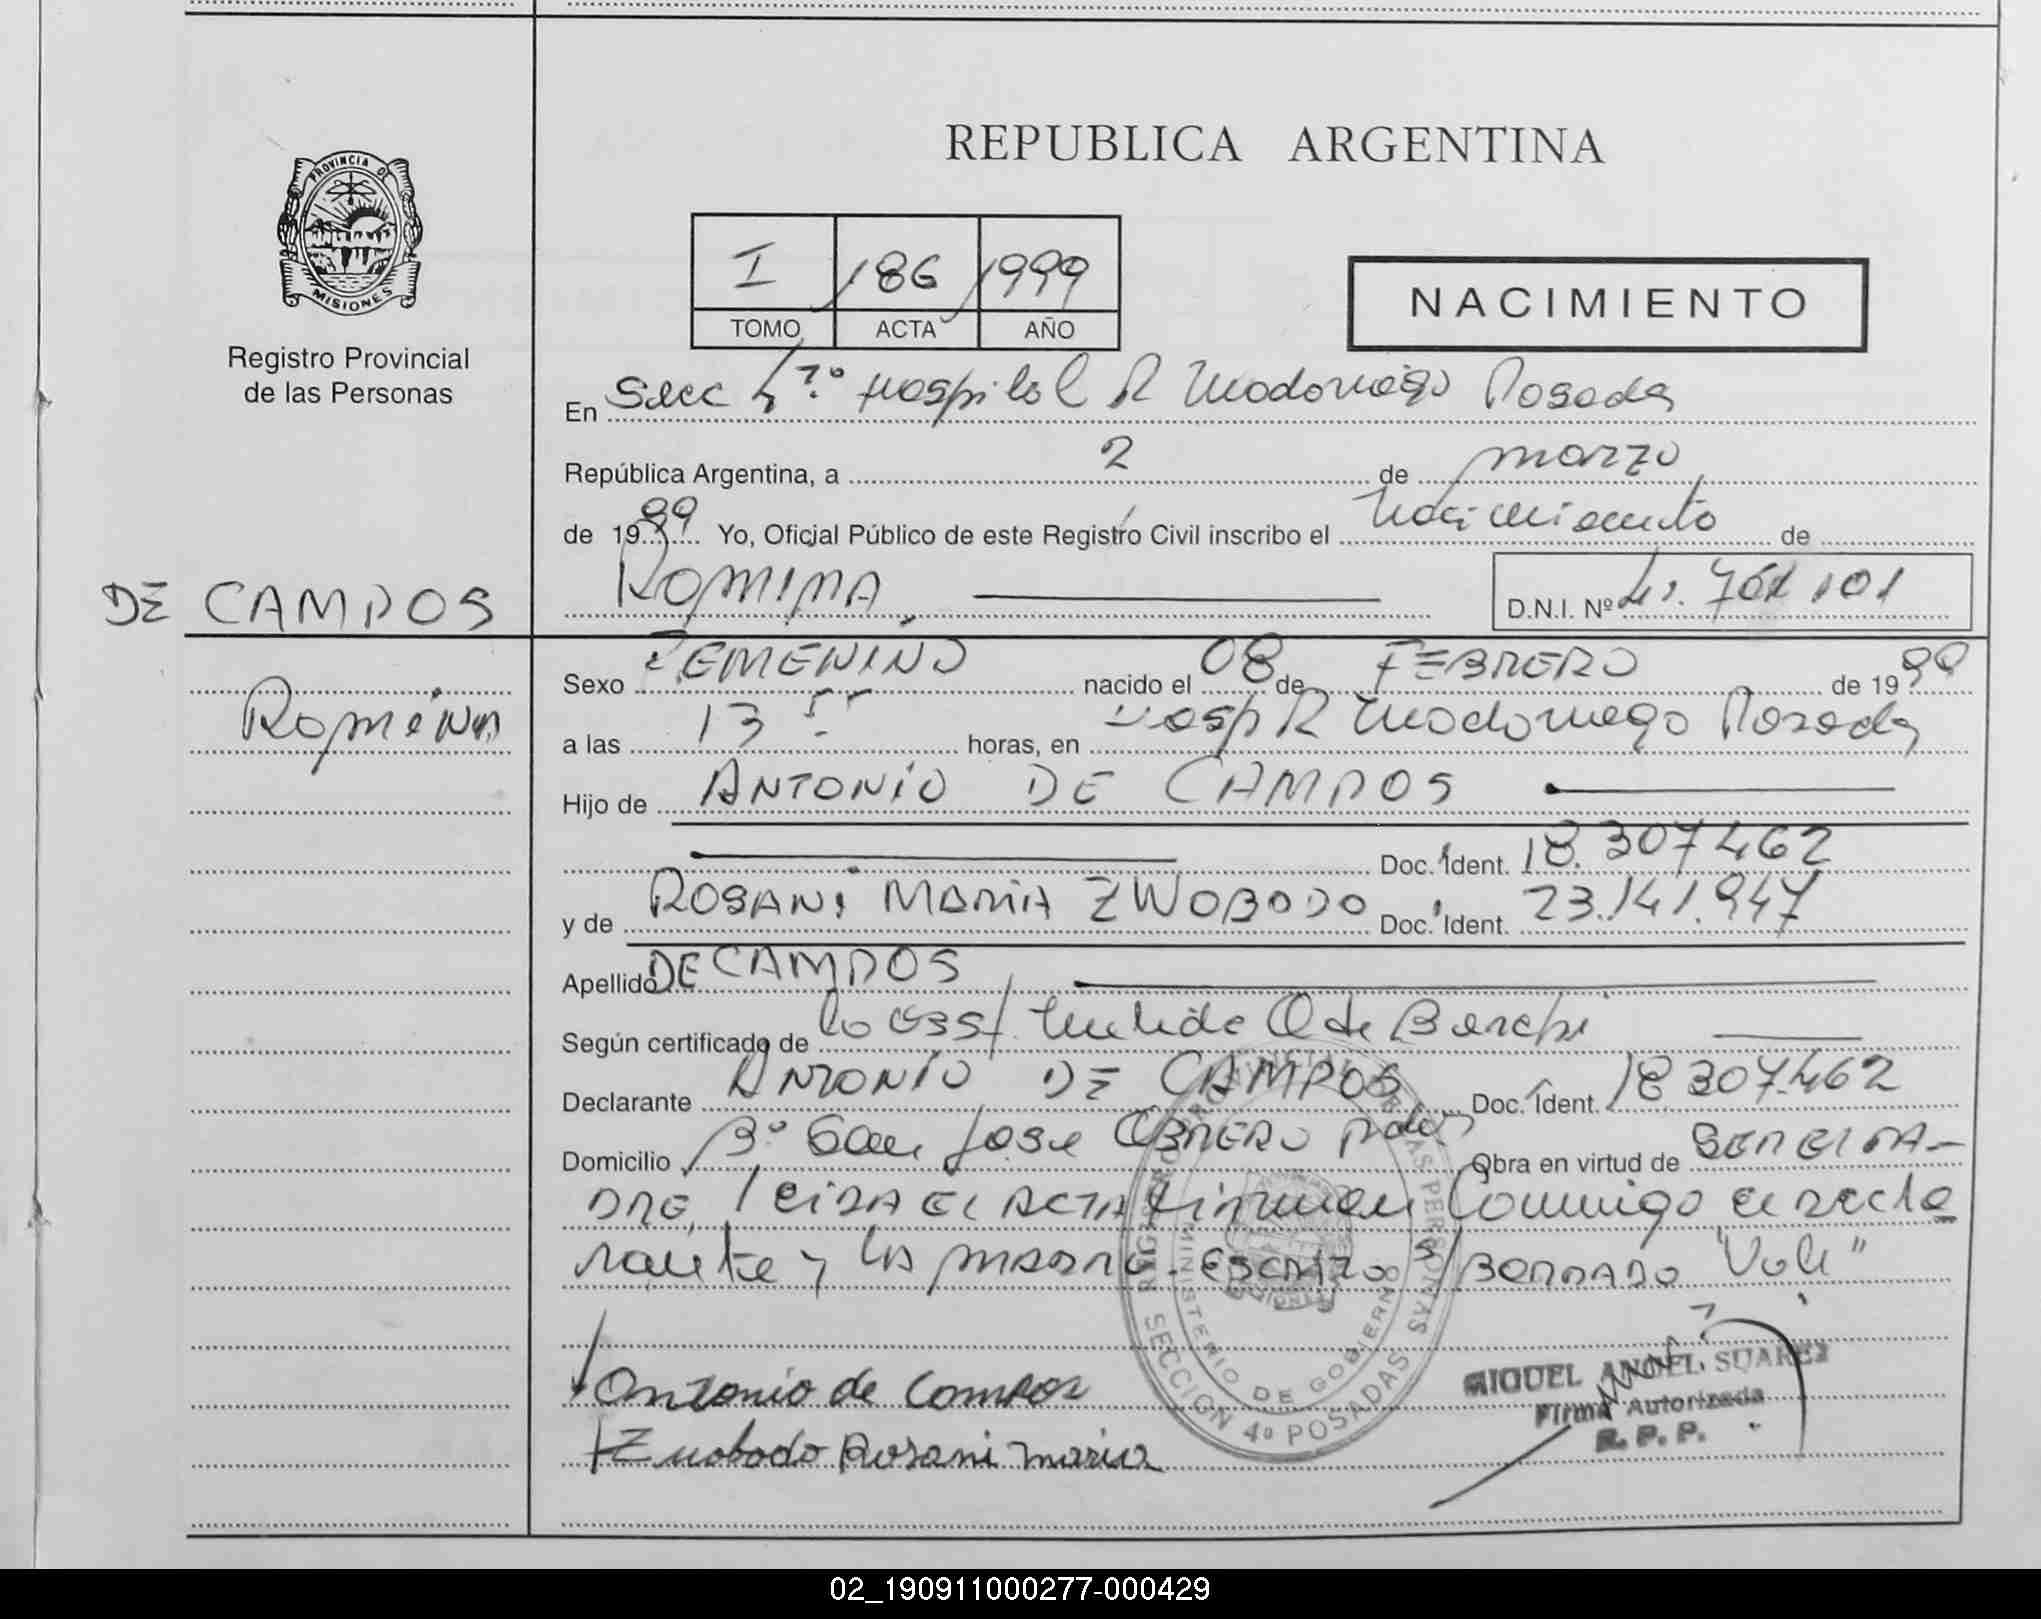 REPUBLICA ARGENTINA
PROVINCIA DE
MISIONES
Registro Provincial
de las Personas
I 186 1999
TOMO ACTA AÑO
NACIMIENTO
En Secc 4ta. Hospital R Madariaga Posadas
República Argentina, a 2 de marzo
de 1999 Yo, Oficial Público de este Registro Civil inscribo el nacimiento de
ROMINA D.N.I. Nº 41.761 101
DE CAMPOS
Romina
Sexo FEMENINO nacido el 08 de FEBRERO de 1999
a las 13 55 horas, en Hosp R Madariaga Posadas
Hijo de ANTONIO DE CAMPOS
Doc. Ident. 18.307462
y de ROSANI MARIA ZWOBODO Doc. Ident. 23.141.947
Apellido DE CAMPOS
Según certificado de
Declarante ANTONIO DE CAMPOS Doc. Ident. 18307.462
Domicilio Bº San Jose OBRERO Pdas Obra en virtud de SER EL PA-
DRE, LEIDA EL ACTA firman conmigo el decla
rante y la MADRE - ESCRITO S/BORRADO "Vale"
Antonio de Campos
Zwobodo Rosani Maria
REGISTRO PROVINCIAL DE LAS PERSONAS
MINISTERIO DE GOBIERNO
SECCION 4º POSADAS
MIGUEL ANGEL SUAREZ
Firma Autorizada
R. P. P.
02_190911000277-000429